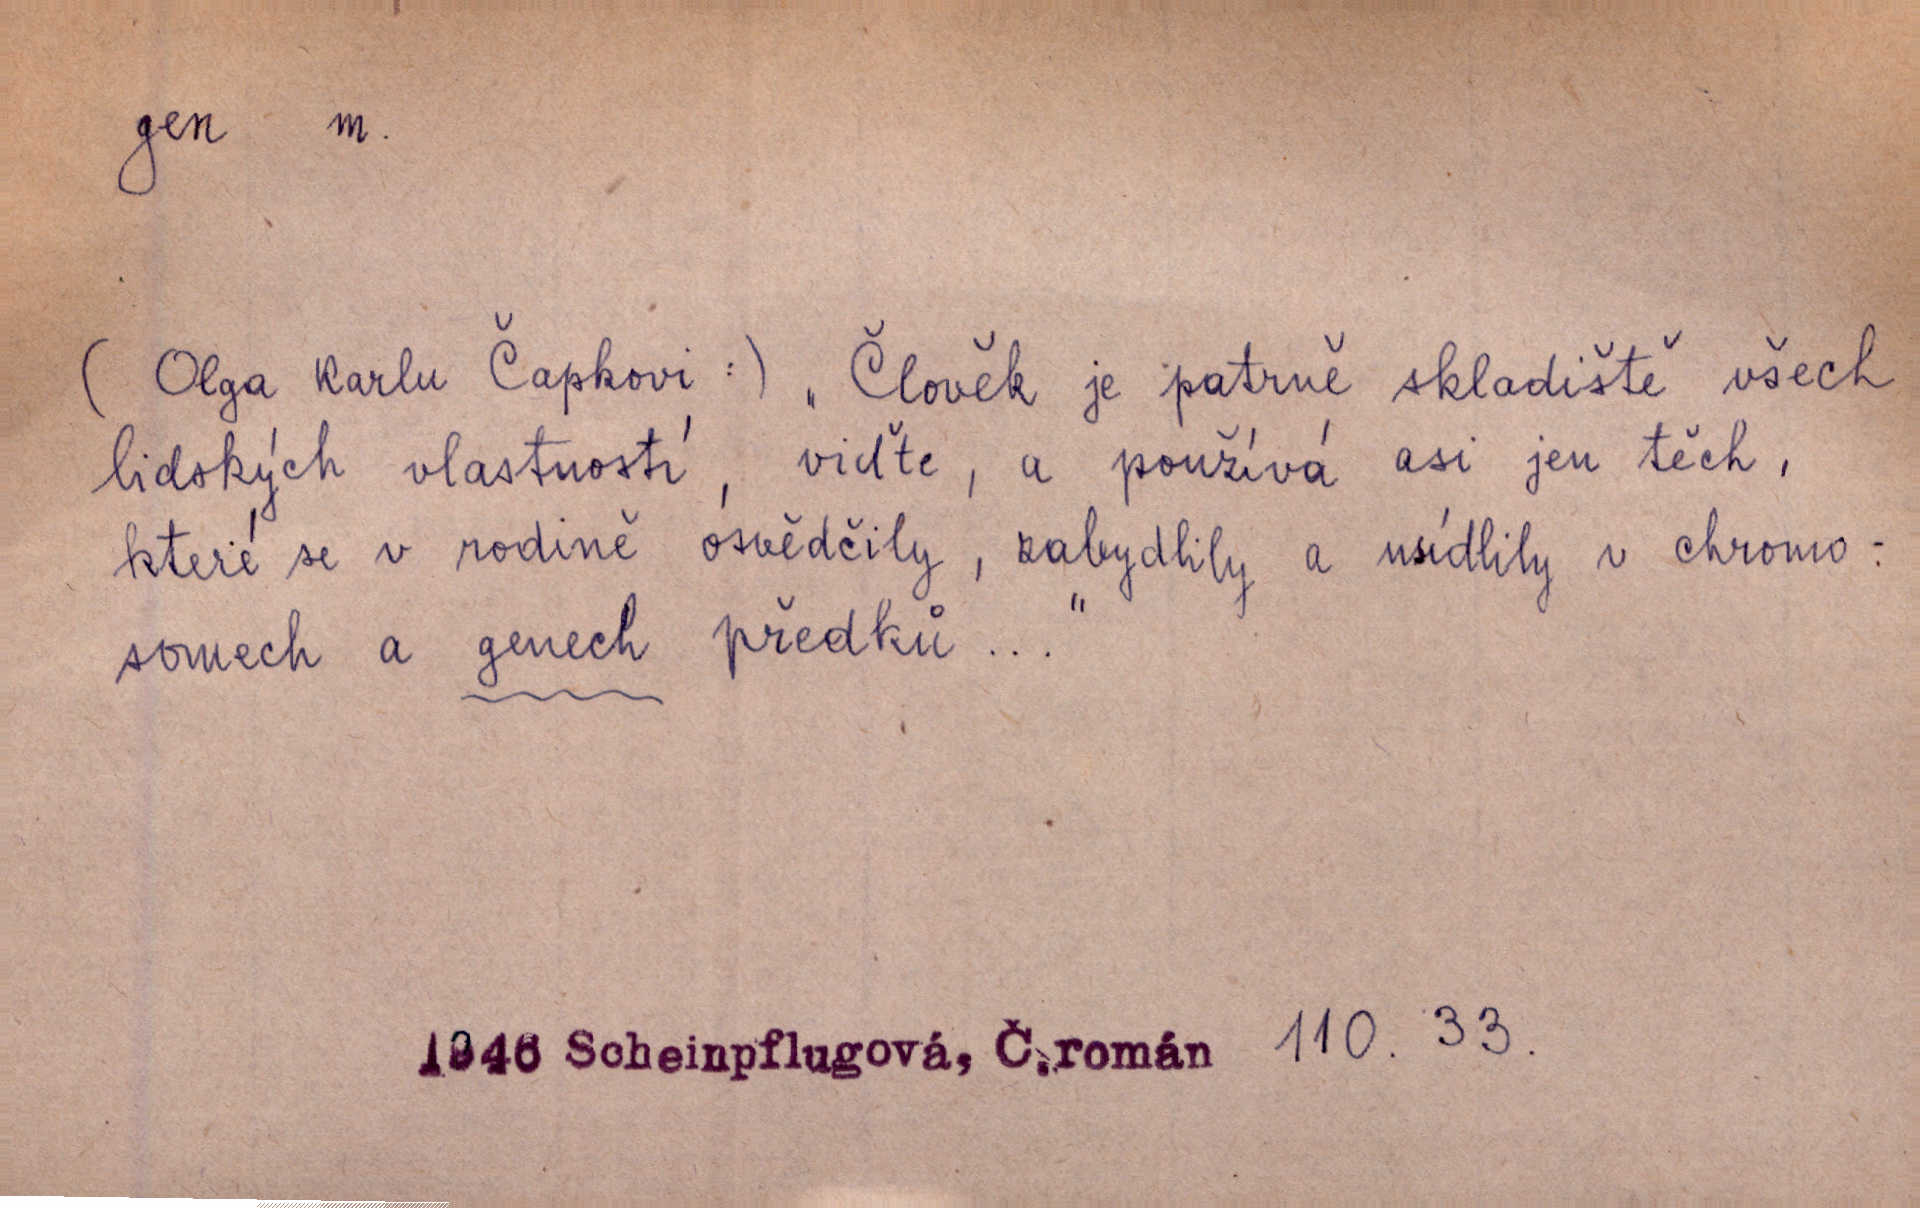 gen m.
( Olga Karlu Čapkovi :) „Člověk je patrně skladiště všech
lidských vlastností, viďte, a používá asi jen těch,
které se v rodině osvědčily, zabydlily a usídlily v chromo-
somech a genech předků ..."
1946 Scheinpflugová, Č.román 110. 33.